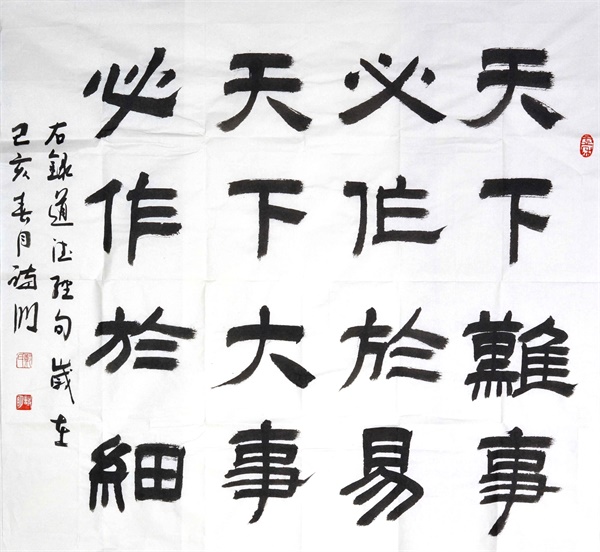 天下難事
必作於易
天下大事
必作於細
右錄道德經句歲在
己亥春月